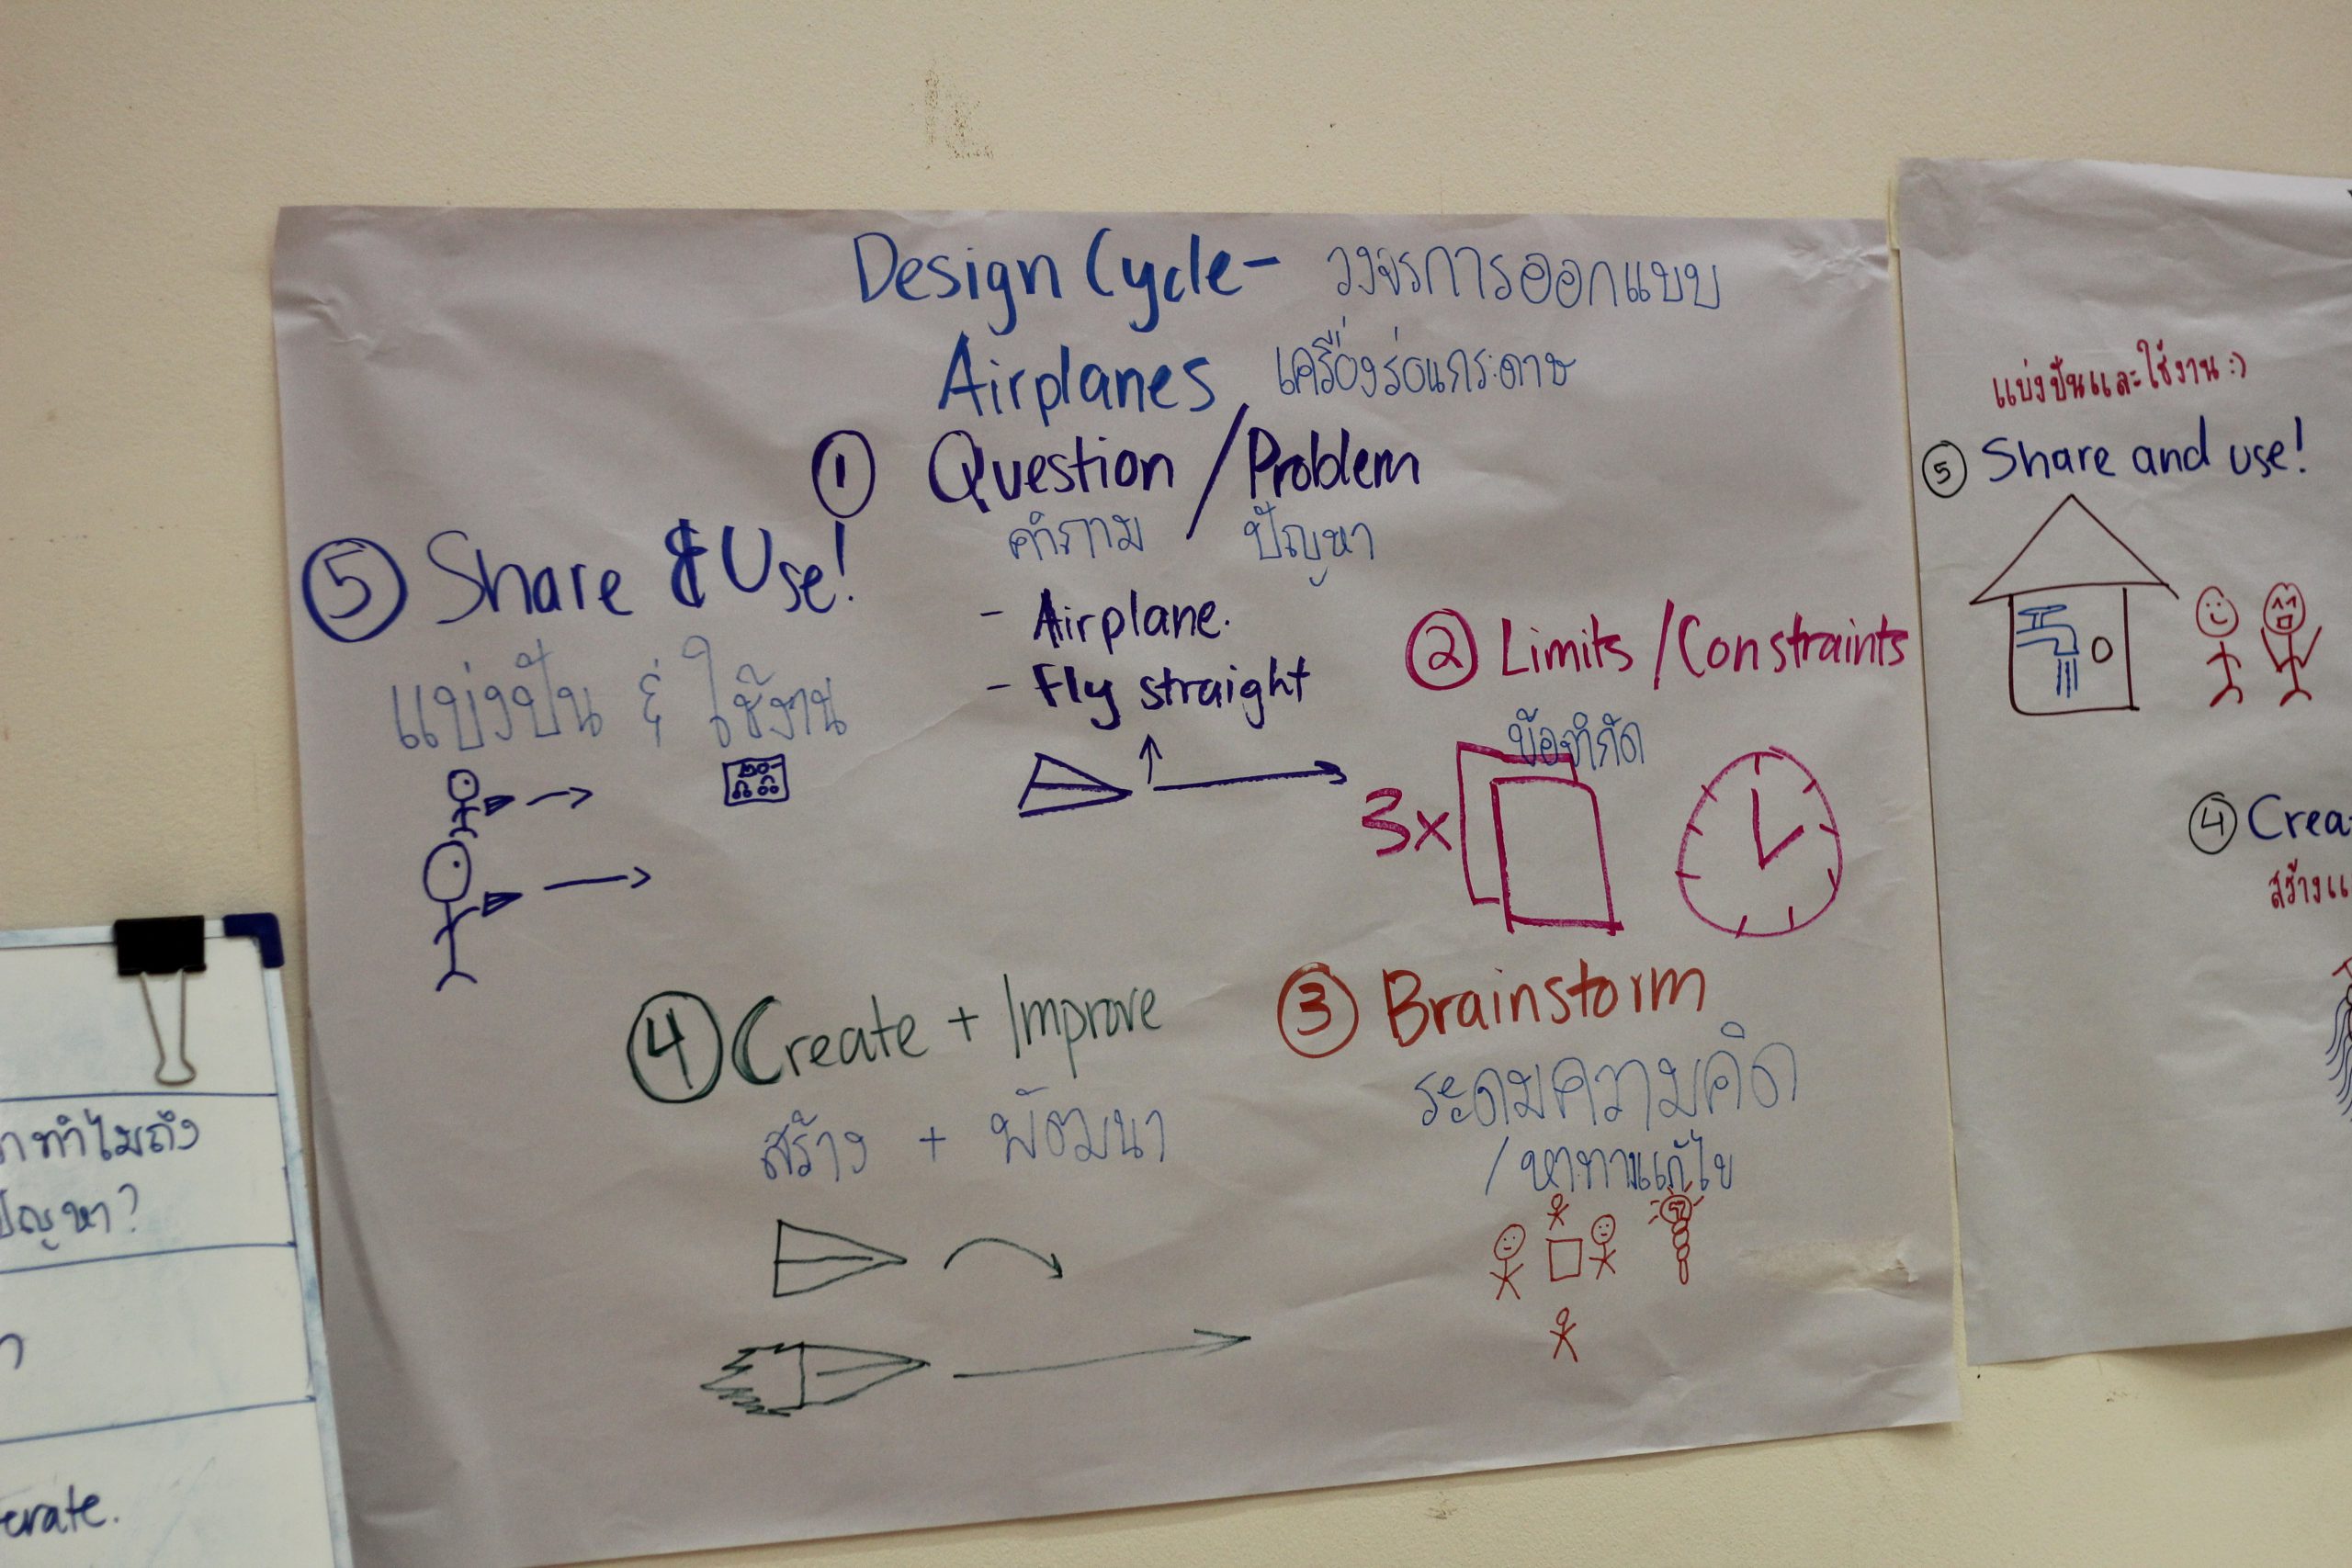 Design Cycle- วงจรการออกแบบ
Airplanes เครื่องร่อนกระดาษ
① Question / Problem
คำถาม / ปัญหา
- Airplane.
- Fly straight
② Limits / Constraints
ข้อจำกัด
3x
③ Brainstorm
ระดมความคิด
/ หาทางแก้ไข
④ Create + Improve
สร้าง + พัฒนา
⑤ Share & Use!
แบ่งปัน & ใช้งาน
แบ่งปันและใช้งาน :)
⑤ Share and use!
④ Crea
สร้างแ
ทำไมถึง
ปัญหา?
erate.